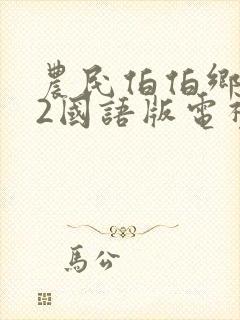 農民伯伯鄉
2國語版電視
馬公